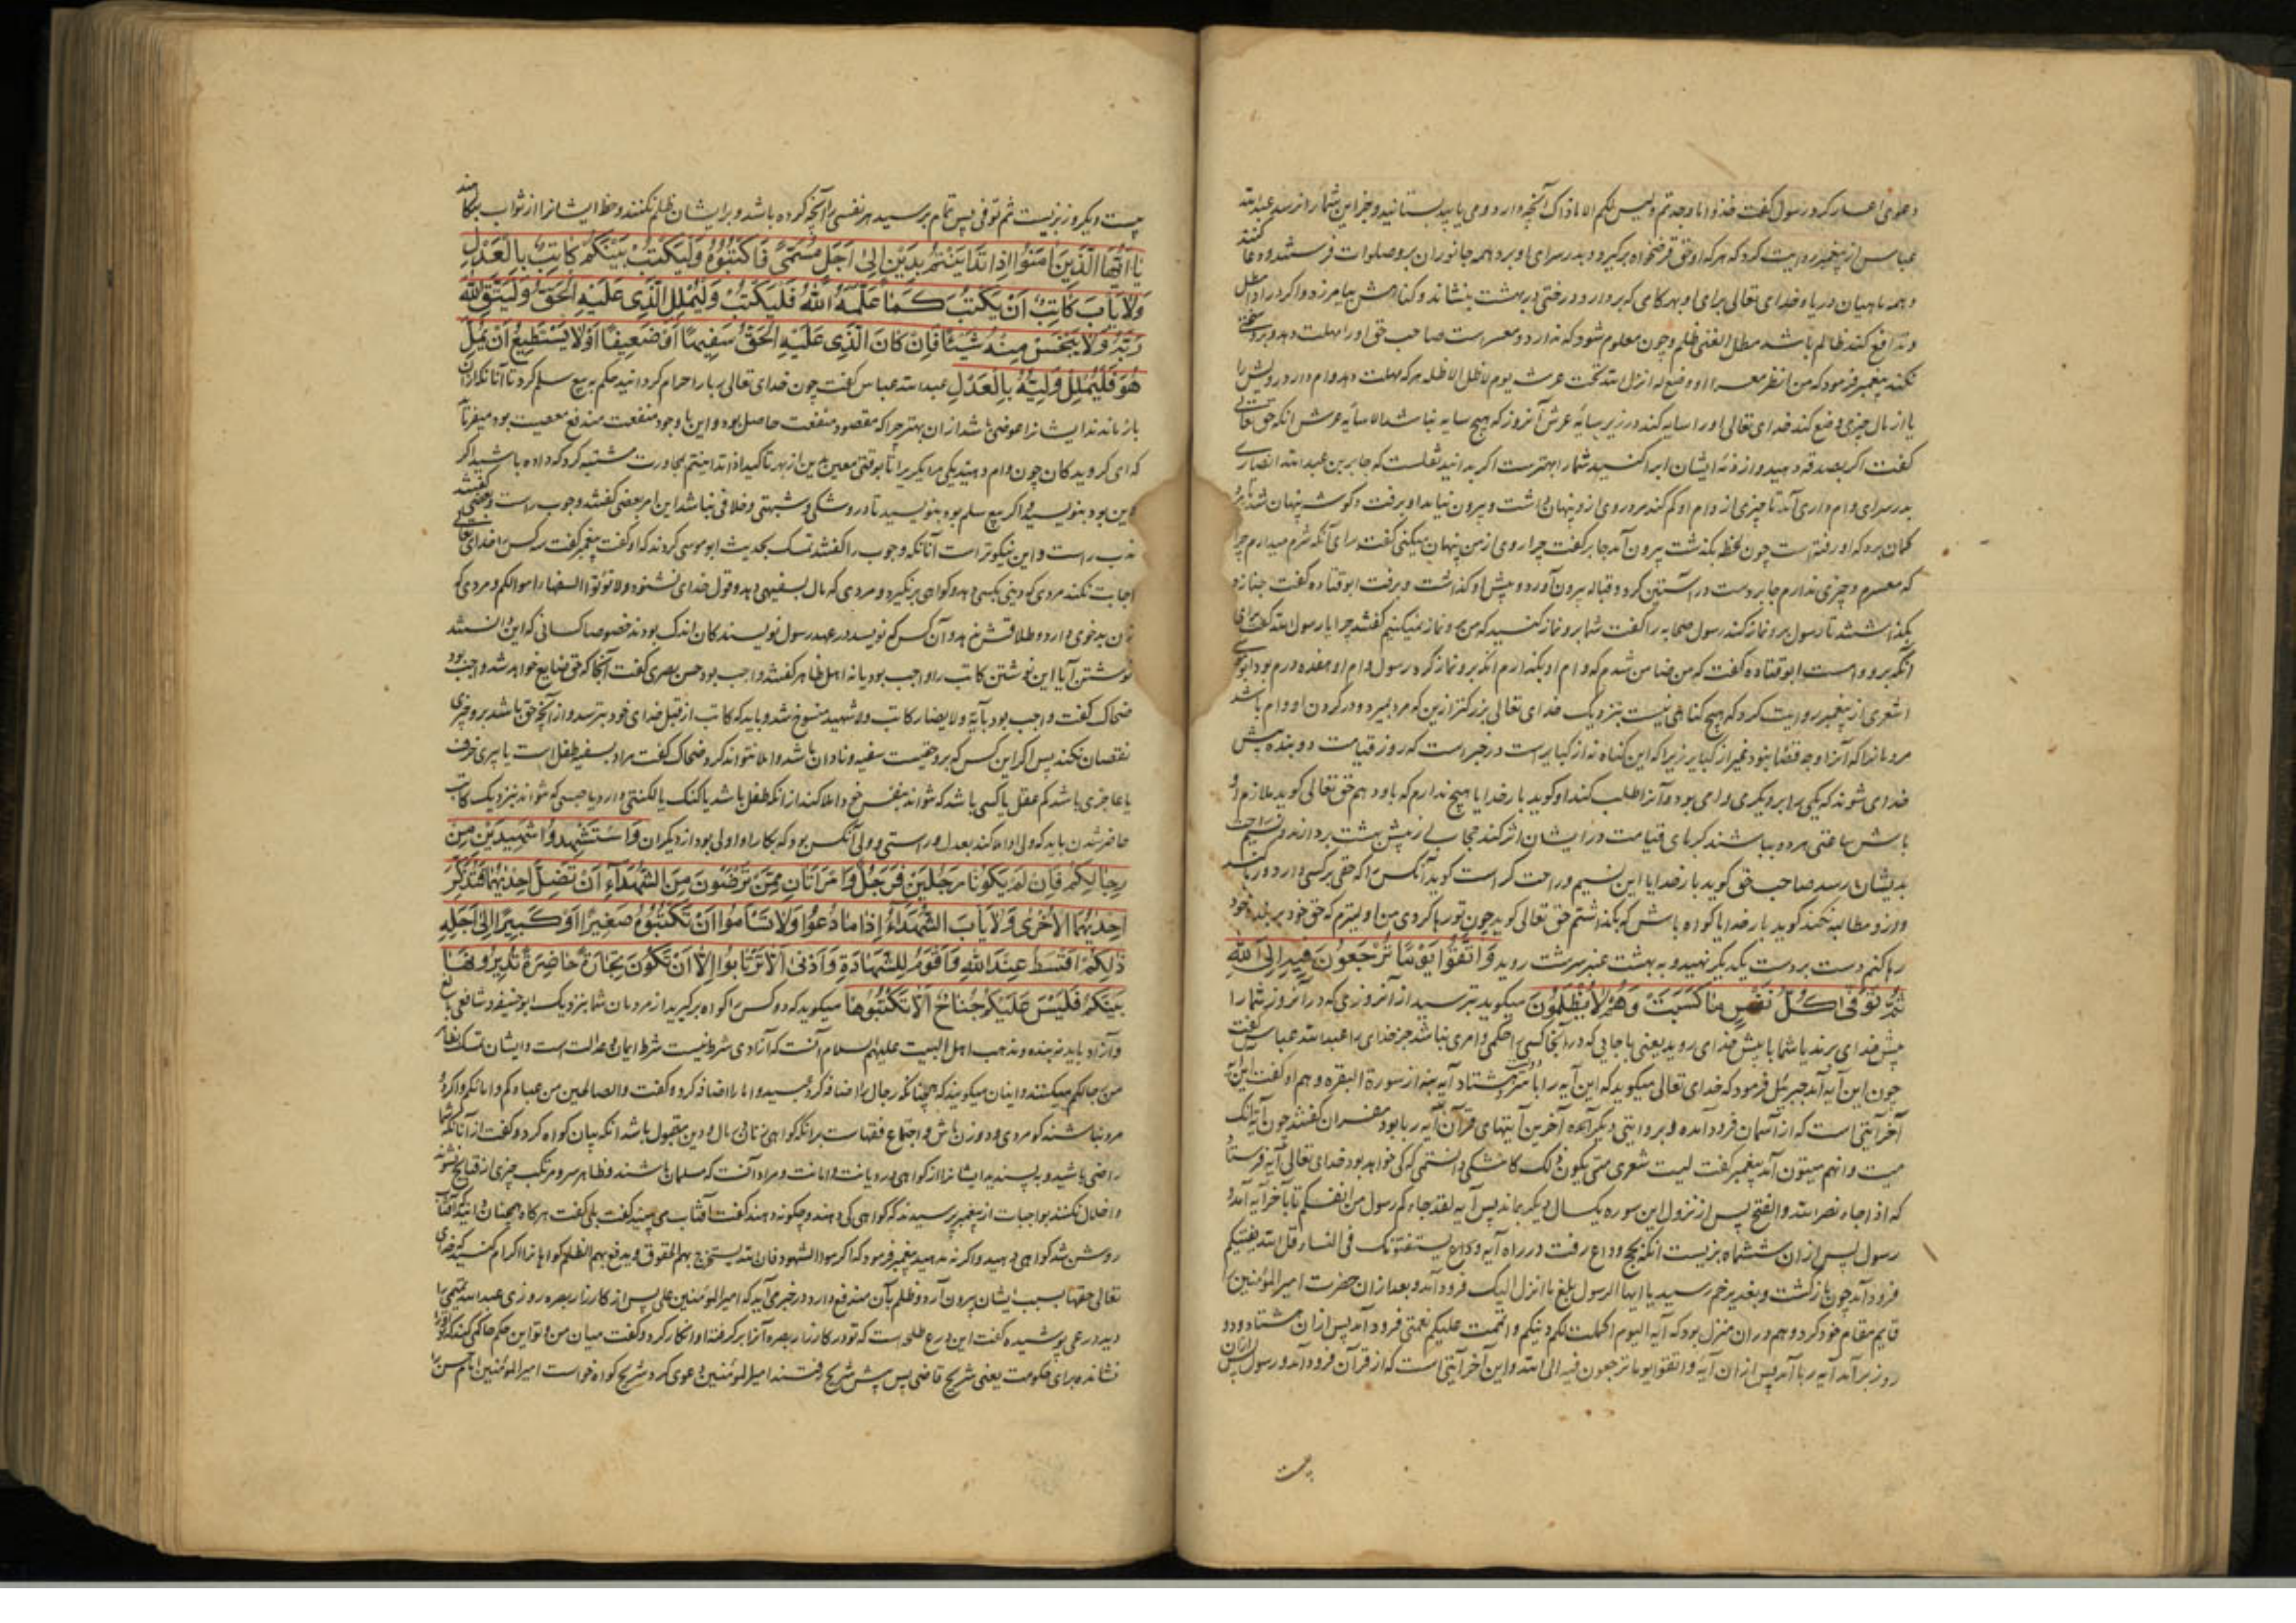 دعوی اعسار کرد رسول گفت خذوا ما وجدتم و لیس لکم الا ذاک آنچه دارد و می یابید بستانید و جز این شما را نرسد عبدالله
عباس از پیغمبر روایت کرد که هر که او حق قرضخواه برگیرد و بدر سرای او برد همه جانوران برو صلوات فرستند و دعا کنند
و همه ماهیان دریا و خدای تعالی برای او بهر کامی که بردارد درختی در بهشت بنشاند و گناهش بیامرزد و اگر در ادا مطل
و تدافع کند ظالم باشد مطل الغنی ظلم و چون معلوم شود که ندارد و معسر است صاحب حق او را مهلت دهد و برو سختی
نکند پیغمبر فرمود که من انظر معسرا او وضع له انزله الله تحت عرشه یوم لا ظل الا ظله هر که مهلت دهد وام دار درویش را
یا از مال چیزی وضع کند خدای تعالی او را سایه کند در زیر سایه عرش آنروز که هیچ سایه نباشد الا سایه عرش آنکه حق تعالی
گفت اگر بصدقه دهید و از ذمه ایشان ابرا کنید شما را بهترست اگر بدانید ثعلبست که جابر بن عبدالله انصاری
بدر سرای وام داری آمد تا چیزی از وام او کم کند مرد روی ازو پنهان داشت و بیرون نیامد او برفت و گوشه پنهان شد تا مرد
گمان برد که او رفته است چون لحظه بگذشت بیرون آمد جابر گفت چرا روی از من پنهان میکنی گفت برای آنکه شرم میدارم چرا
که معسرم و چیزی ندارم جابر دست در آستین کرد و قباله بیرون آورد و پیش او گذاشت و برفت ابوقتاده گفت جنازه
بگذاشتند تا رسول برو نماز کند رسول صحابه را گفت شما برو نماز کنید که من برو نماز نمیکنم گفتند چرا یا رسول الله گفت برای
آنکه برو وام است ابوقتاده گفت که من ضامن شدم که وام او بگذارم آنگه برو نماز کرد رسول وام او هفده درم بود ابوموسی
اشعری از پیغمبر روایت کرد که هیچ گناهی نیست بنزدیک خدای تعالی بزرگتر ازین که مرد بمیرد و در گردن او وام باشد
مردمانرا که آنرا وجه قضا نبود غیر از کبایر زیرا که این گناه نه از کبایر است در خبر است که روز قیامت دو بنده پیش
خدای شوند که یکی را بر دیگری وامی بود و آنرا طلب کند او گوید بار خدایا هیچ ندارم که باو دهم حق تعالی گوید ملازم او
باش ساعتی هر دو بباشند گرمای قیامت در ایشان اثر کند حجابی از پیش بهشت بردارند و نسیم راحت
بدیشان رسد صاحب حق گوید بار خدایا این نسیم و راحت کراست گوید آنکس را که حقی بر کسی دارد و رها کند
و ازو مطالبه نکند گوید بار خدایا گواه باش که بگذاشتم حق تعالی گوید چون تو رها کردی من اولیترم که حق خود بر بنده خود
رها کنم دست بر دست یکدیگر نهید و به بهشت عنبر سرشت روید وَاتَّقُوا يَوْمًا تُرْجَعُونَ فِيهِ إِلَى اللَّهِ
ثُمَّ تُوَفَّى كُلُّ نَفْسٍ مَا كَسَبَتْ وَهُمْ لَا يُظْلَمُونَ میگوید بترسید از آنروزی که در آنروز شما را
پیش خدای برند یا شما با پیش خدای روید یعنی با جایی که در آنجا کسی را حکمی و امری نباشد جز خدای را عبدالله عباس گفت
چون این آیه آمد جبرئیل فرمود که خدای تعالی میگوید که این آیه را با سر دویست و هشتاد آیه بنه از سوره البقره و هم او گفت این آیه
آخر آیتی است که از آسمان فرود آمده و بروایتی دیگر آمده آخرین آیتهای قرآن آیه ربا بود مفسران گفتند چون آیه انک
میت و انهم میتون آمد پیغمبر گفت لیت شعری متی یکون ذلک کاشکی دانستمی که کی خواهد بود خدای تعالی آیه فرستاد
که اذا جاء نصرالله والفتح پس از نزول این سوره یکسال دیگر بماند پس آیه لقد جاءکم رسول من انفسکم تا بآخر آیه آمد و
رسول پس از آن ششماه بزیست آنگه بحج وداع رفت در راه آیه وداع یستفتونک فی النساء قل الله یفتیکم
فرود آمد چون بازگشت و بغدیر خم رسید یا ایها الرسول بلغ ما انزل الیک فرود آمد و بعد از آن حضرت امیرالمؤمنین را
قایم مقام خود کرد و هم در آن منزل بود که آیه الیوم اکملت لکم دینکم و اتممت علیکم نعمتی فرود آمد پس از آن هشتاد و دو
روز برآمد آیه ربا آمد پس از آن آیه و اتقوا یوما ترجعون فیه الی الله و این آخر آیتی است که از قرآن فرود آمد و رسول پس از آن
بیست
بیست و یکروز بزیست ثم توفی پس تمام برسید هر نفسی را آنچه کرده باشد و بر ایشان ظلم نکنند و حظ ایشانرا از ثواب بنکاهند
يَا أَيُّهَا الَّذِينَ آمَنُوا إِذَا تَدَايَنْتُمْ بِدَيْنٍ إِلَى أَجَلٍ مُسَمًّى فَاكْتُبُوهُ وَلْيَكْتُبْ بَيْنَكُمْ كَاتِبٌ بِالْعَدْلِ
وَلَا يَأْبَ كَاتِبٌ أَنْ يَكْتُبَ كَمَا عَلَّمَهُ اللَّهُ فَلْيَكْتُبْ وَلْيُمْلِلِ الَّذِي عَلَيْهِ الْحَقُّ وَلْيَتَّقِ اللَّهَ
رَبَّهُ وَلَا يَبْخَسْ مِنْهُ شَيْئًا فَإِنْ كَانَ الَّذِي عَلَيْهِ الْحَقُّ سَفِيهًا أَوْ ضَعِيفًا أَوْ لَا يَسْتَطِيعُ أَنْ يُمِلَّ
هُوَ فَلْيُمْلِلْ وَلِيُّهُ بِالْعَدْلِ عبدالله عباس گفت چون خدای تعالی ربا را حرام گردانید حکم به بیع سلم کرد تا آنانکه از آن
باز ماندند ایشانرا عوضی باشد از آن بهتر چرا که مقصود منفعت حاصل بود و این با وجود منفعت مندفع معصیت بود میفرماید
که ای گرویدگان چون وام دهید یکی مر یکدیگر را تا بوقتی معین بدین از بهر تاکید اذا تداینتم بمجاورت مشتبه گردد که داده باشید اگر
دین بود بنویسید و اگر بیع سلم بود بنویسید تا درو شکی و شبهتی و خلافی نباشد این امر بعضی گفتند وجوب راست و بعضی گفتند
ندب راست و این نیکوتر است آنانکه وجوب را گفتند تمسک بحدیث ابوموسی کردند که او گفت پیغمبر گفت سه کس را خدای تعالی
اجابت نکند مردی که دینی بکسی دهد و گواهی برنگیرد و مردی که مال بسفیهی دهد و قول خدای نشنود و لا تؤتوا السفهاء اموالکم و مردی که
زن بدخوی دارد و طلاقش ندهد و آن کس که نویسد در عهد رسول نویسندگان اندک بودند خصوصا کسانی که این دانستند
نوشتن آیا این نوشتن کاتب را واجب بود یا نه اهل ظاهر گفتند واجب بود حسن بصری گفت آنجا که حق ضایع خواهد شد واجب بود
ضحاک گفت واجب بود بآیة و لا یضار کاتب ولا شهید منسوخ شد و باید که کاتب از قبل خدای خود بترسد و از آنچه حق باشد برو چیزی
نقصان نکند پس اگر این کس که برو حقیست سفیه و نادان باشد و املا نتواند کرد ضحاک گفت مراد بسفیه طفل است یا پیری خرف
یا عاجزی باشد کم عقل یا کسی باشد که نتواند بنفس خود املا کند از آنکه طفل باشد یا گنگ یا لکنتی دارد یا حبسی که نتواند بنزدیک کاتب
حاضر شدن باید که ولی او املا کند بعدل و راستی و ولی آنکس بود که بکار او اولی بود از دیگران وَاسْتَشْهِدُوا شَهِيدَيْنِ مِنْ
رِجَالِكُمْ فَإِنْ لَمْ يَكُونَا رَجُلَيْنِ فَرَجُلٌ وَامْرَأَتَانِ مِمَّنْ تَرْضَوْنَ مِنَ الشُّهَدَاءِ أَنْ تَضِلَّ إِحْدَيهُمَا فَتُذَكِّرَ
إِحْدَيهُمَا الْأُخْرَى وَلَا يَأْبَ الشُّهَدَاءُ إِذَا مَا دُعُوا وَلَا تَسْأَمُوا أَنْ تَكْتُبُوهُ صَغِيرًا أَوْ كَبِيرًا إِلَى أَجَلِهِ
ذَلِكُمْ أَقْسَطُ عِنْدَ اللَّهِ وَأَقْوَمُ لِلشَّهَادَةِ وَأَدْنَى أَلَّا تَرْتَابُوا إِلَّا أَنْ تَكُونَ تِجَارَةً حَاضِرَةً تُدِيرُونَهَا
بَيْنَكُمْ فَلَيْسَ عَلَيْكُمْ جُنَاحٌ أَلَّا تَكْتُبُوهَا میگوید که دو کس را گواه برگیرید از مردمان شما بنزدیک ابوحنیفه و شافعی بالغ
و آزاد باید نه بنده و مذهب اهل البیت علیهم السلام آنست که آزادی شرط نیست شرط ایمان و عدالت است و ایشان تمسک بظاهر
من رجالکم میکنند و اینان میگویند که همچنانکه رجال را اضافه کرد عبید و اما را اضافه کرد و گفت والصالحین من عبادکم و امائکم و اگر دو
مرد نباشند گو مردی و دو زن باش و اجماع فقهاست برآنکه گواهی زنان در مال و دین مقبول باشد آنکه بیان گواه کرد و گفت از آنانکه شما
راضی باشید و بپسندید ایشانرا از گواهی در دیانت و امانت و مراد آنست که مسلمان باشند و ظاهر سر و مرتکب چیزی از قبایح نشوند
و اخلال نکنند بواجبات از پیغمبر پرسیدند که گواهی کی دهند و چگونه دهند گفت آفتاب می بینید گفت بلی گفت هرگاه همچنان دانید که آفتاب
روشن شد گواهی دهید و اگر نه ندهید پیغمبر فرمود که اکرموا الشهود فان الله یستخرج بهم الحقوق و یدفع بهم الظلم گواهانرا اکرام کنید که خدای
تعالی حقها بسبب ایشان بیرون آرد و ظلم بآن مندفع دارد در خبر می آید که امیرالمؤمنین علی پس از کارزار بصره روزی عبدالله تمیمی را
دید درعی پوشیده گفت این درع طلحه است که تو در کارزار بصره آنرا برگرفته او انکار کرد و گفت میان من و تو این حکم حاکمی کند که تو او را
نشانده برای حکومت یعنی شریح قاضی پس پیش شریح رفتند امیرالمؤمنین دعوی کرد و شریح گواه خواست امیرالمؤمنین امام حسن را